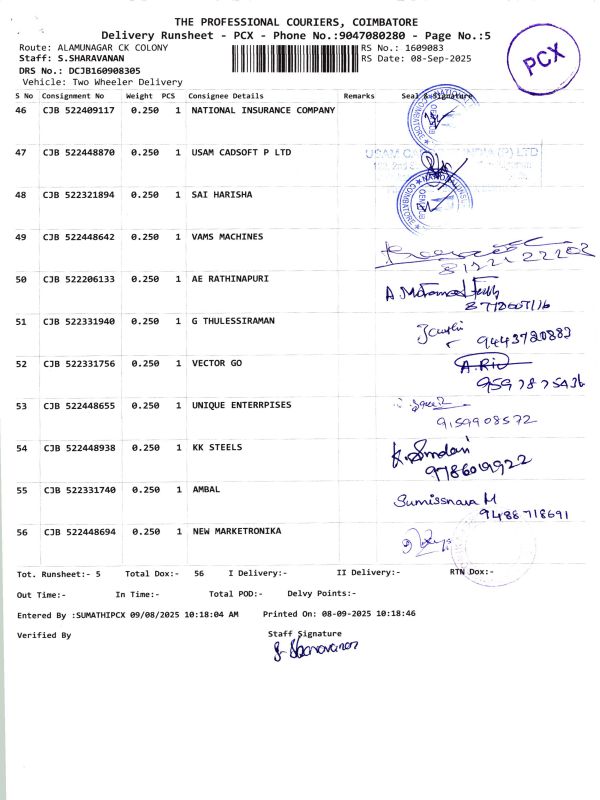 THE PROFESSIONAL COURIERS, COIMBATORE
Delivery Runsheet - PCX - Phone No.:9047080280 - Page No.:5
PCX
Route: ALAMUNAGAR CK COLONY
RS No.: 1609083
Staff: S.SHARAVANAN
RS Date: 08-Sep-2025
DRS No.: DCJB160908305
Vehicle: Two Wheeler Delivery
S No Consignment No Weight PCS Consignee Details Remarks Seal & Signature
46 CJB 522409117 0.250 1 NATIONAL INSURANCE COMPANY
47 CJB 522448870 0.250 1 USAM CADSOFT P LTD
48 CJB 522321894 0.250 1 SAI HARISHA
49 CJB 522448642 0.250 1 VAMS MACHINES
50 CJB 522206133 0.250 1 AE RATHINAPURI
51 CJB 522331940 0.250 1 G THULESSIRAMAN
9443720883
52 CJB 522331756 0.250 1 VECTOR GO
53 CJB 522448655 0.250 1 UNIQUE ENTERRPISES
9159908572
54 CJB 522448938 0.250 1 KK STEELS
9786019922
55 CJB 522331740 0.250 1 AMBAL
9488718691
56 CJB 522448694 0.250 1 NEW MARKETRONIKA
Tot. Runsheet:- 5 Total Dox:- 56 I Delivery:- II Delivery:- RTN Dox:-
Out Time:- In Time:- Total POD:- Delvy Points:-
Entered By :SUMATHIPCX 09/08/2025 10:18:04 AM Printed On: 08-09-2025 10:18:46
Verified By Staff Signature